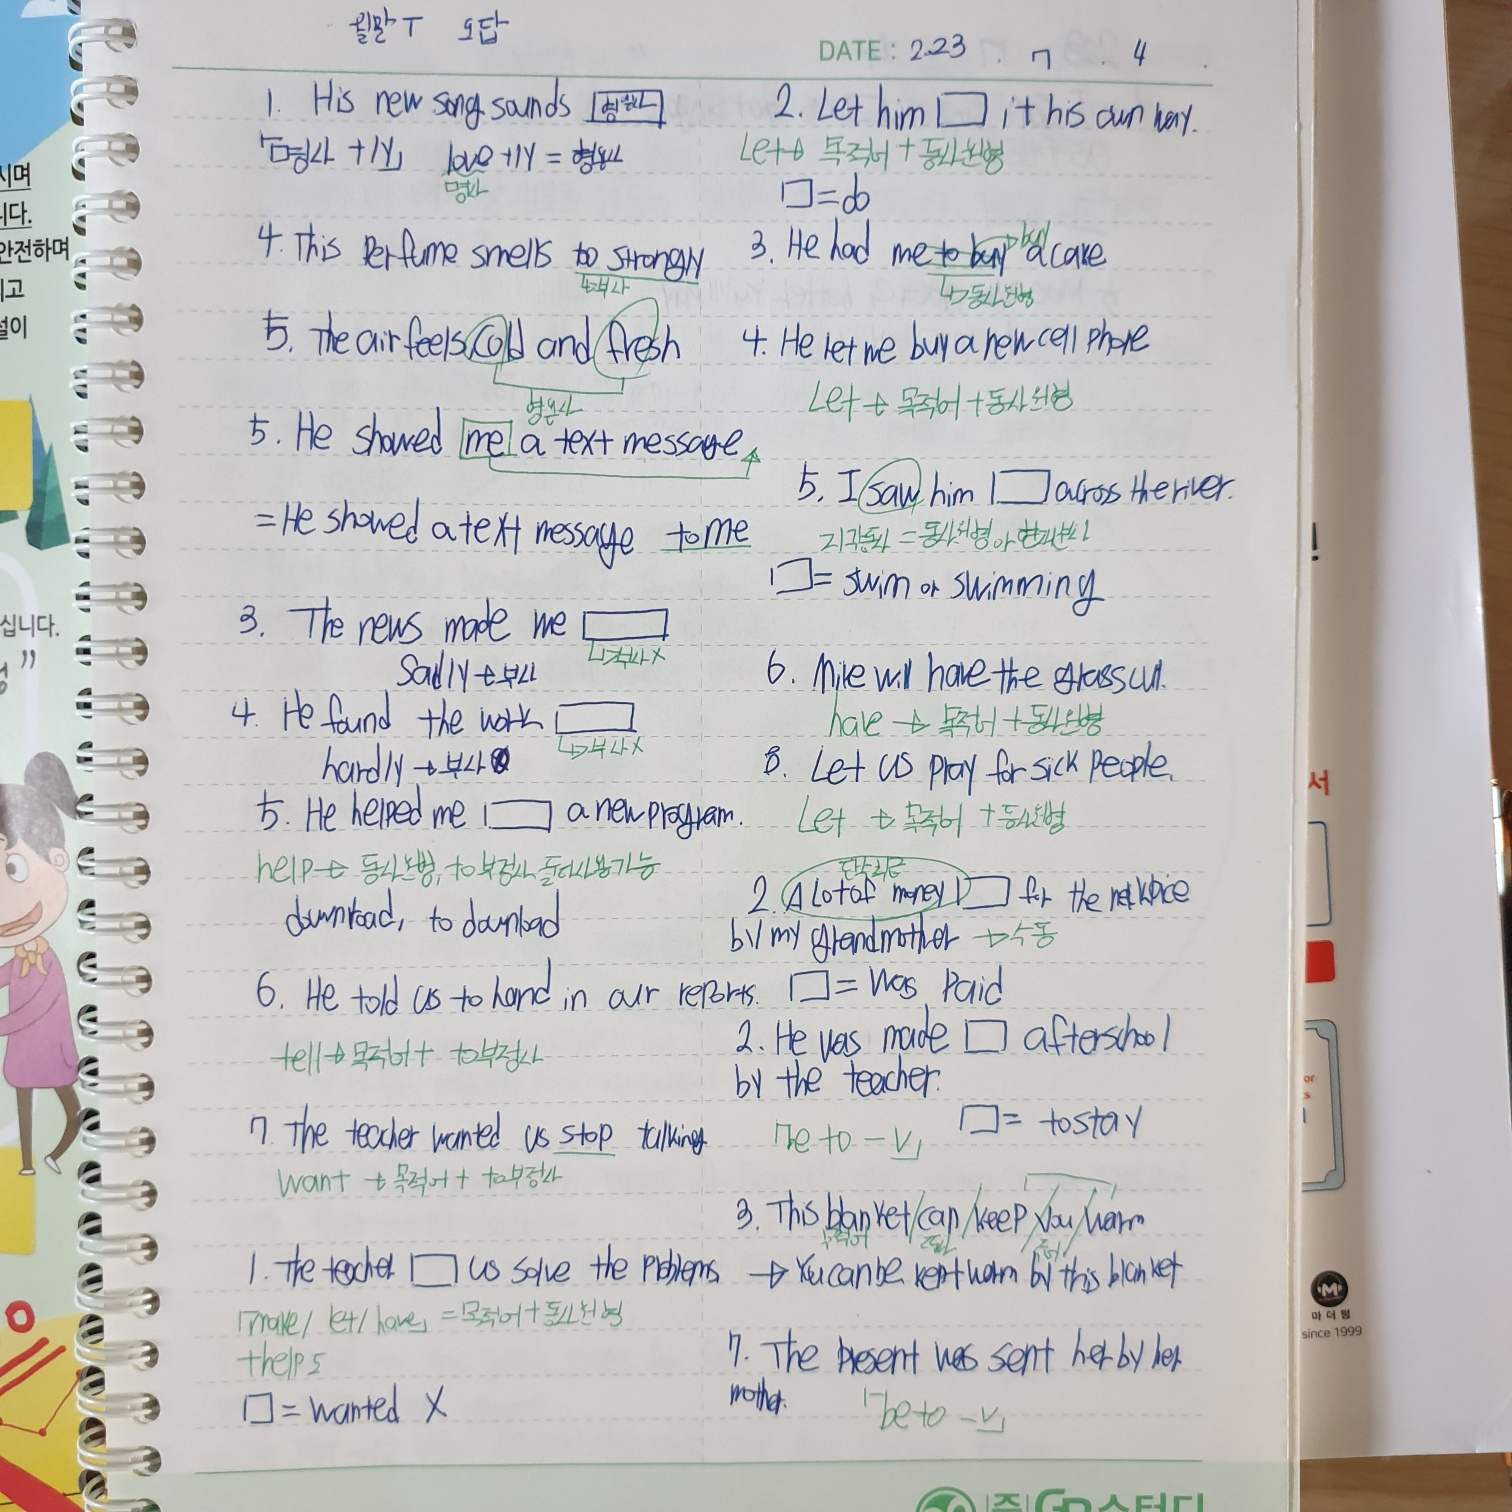 월말 T 오답
DATE : 2.23 . 7 . 4 .
1. His new song sounds 형용사
「명사 + ly」 love + ly = 형용사
명사
4. This Perfume smells to strongly
↳부사
5. The air feels cold and fresh
형용사
5. He showed me a text message
= He showed a text message to me
3. The news made me □
↳부사 X
Sadly → 부사
4. He found the work □
↳부사 X
hardly → 부사
5. He helped me □ a new program.
help → 동사원형, to부정사 둘다사용가능
download, to download
6. He told us to hand in our reports.
tell → 목적어 + to부정사
7. The teacher wanted us stop talking
want → 목적어 + to부정사
1. The teacher □ us solve the problems
「make / let / have」 = 목적어 + 동사원형
+ help도
□ = wanted X
2. Let him □ it his own way.
Let → 목적어 + 동사원형
□ = do
buy
3. He had me to buy a cake
↳동사원형
4. He let me buy a new cell phone
Let → 목적어 + 동사원형
5. I saw him □ across the river.
지각동사 = 동사원형 or 현재분사
□ = swim or swimming
6. Mike will have the grass cut.
have → 목적어 + 동사원형
8. Let us pray for sick people.
Let → 목적어 + 동사원형
2. A lot of money □ for the necklace
by my grandmother → 수동
□ = was paid
2. He was made □ after school
by the teacher.
□ = to stay
「be to - v」
3. This blanket / can / keep / you / warm
→ You can be kept warm by this blanket
7. The present was sent her by her
mother.
「be to - v」
마더텅
since 1999
시며
니다.
안전하며
이고
설이
십니다.
서